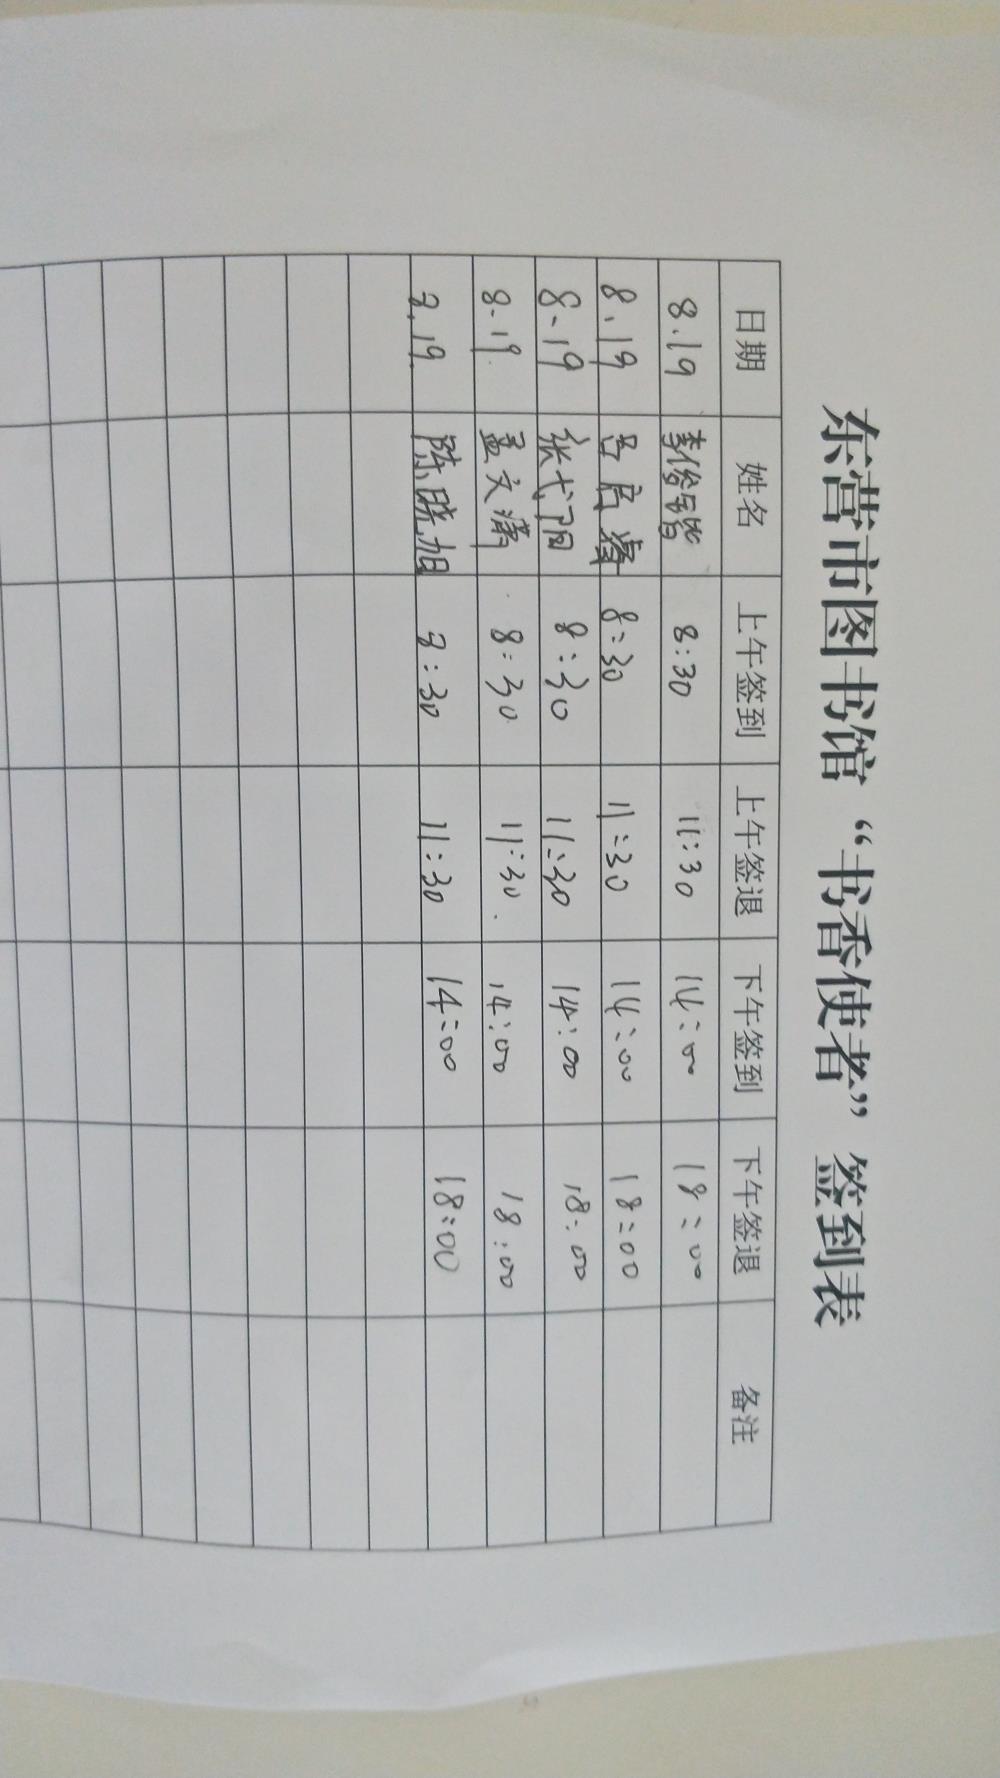 东营市图书馆“书香使者”签到表
日期 姓名 上午签到 上午签退 下午签到 下午签退 备注
8.19 8:30 11:30 14:00 18:00
8.19 8:30 11:30 14:00 18:00
8.19 8:30 11:30 14:00 18:00
8.19 孟文潇 8:30 11:30 14:00 18:00
8.19 陈晓旭 8:30 11:30 14:00 18:00